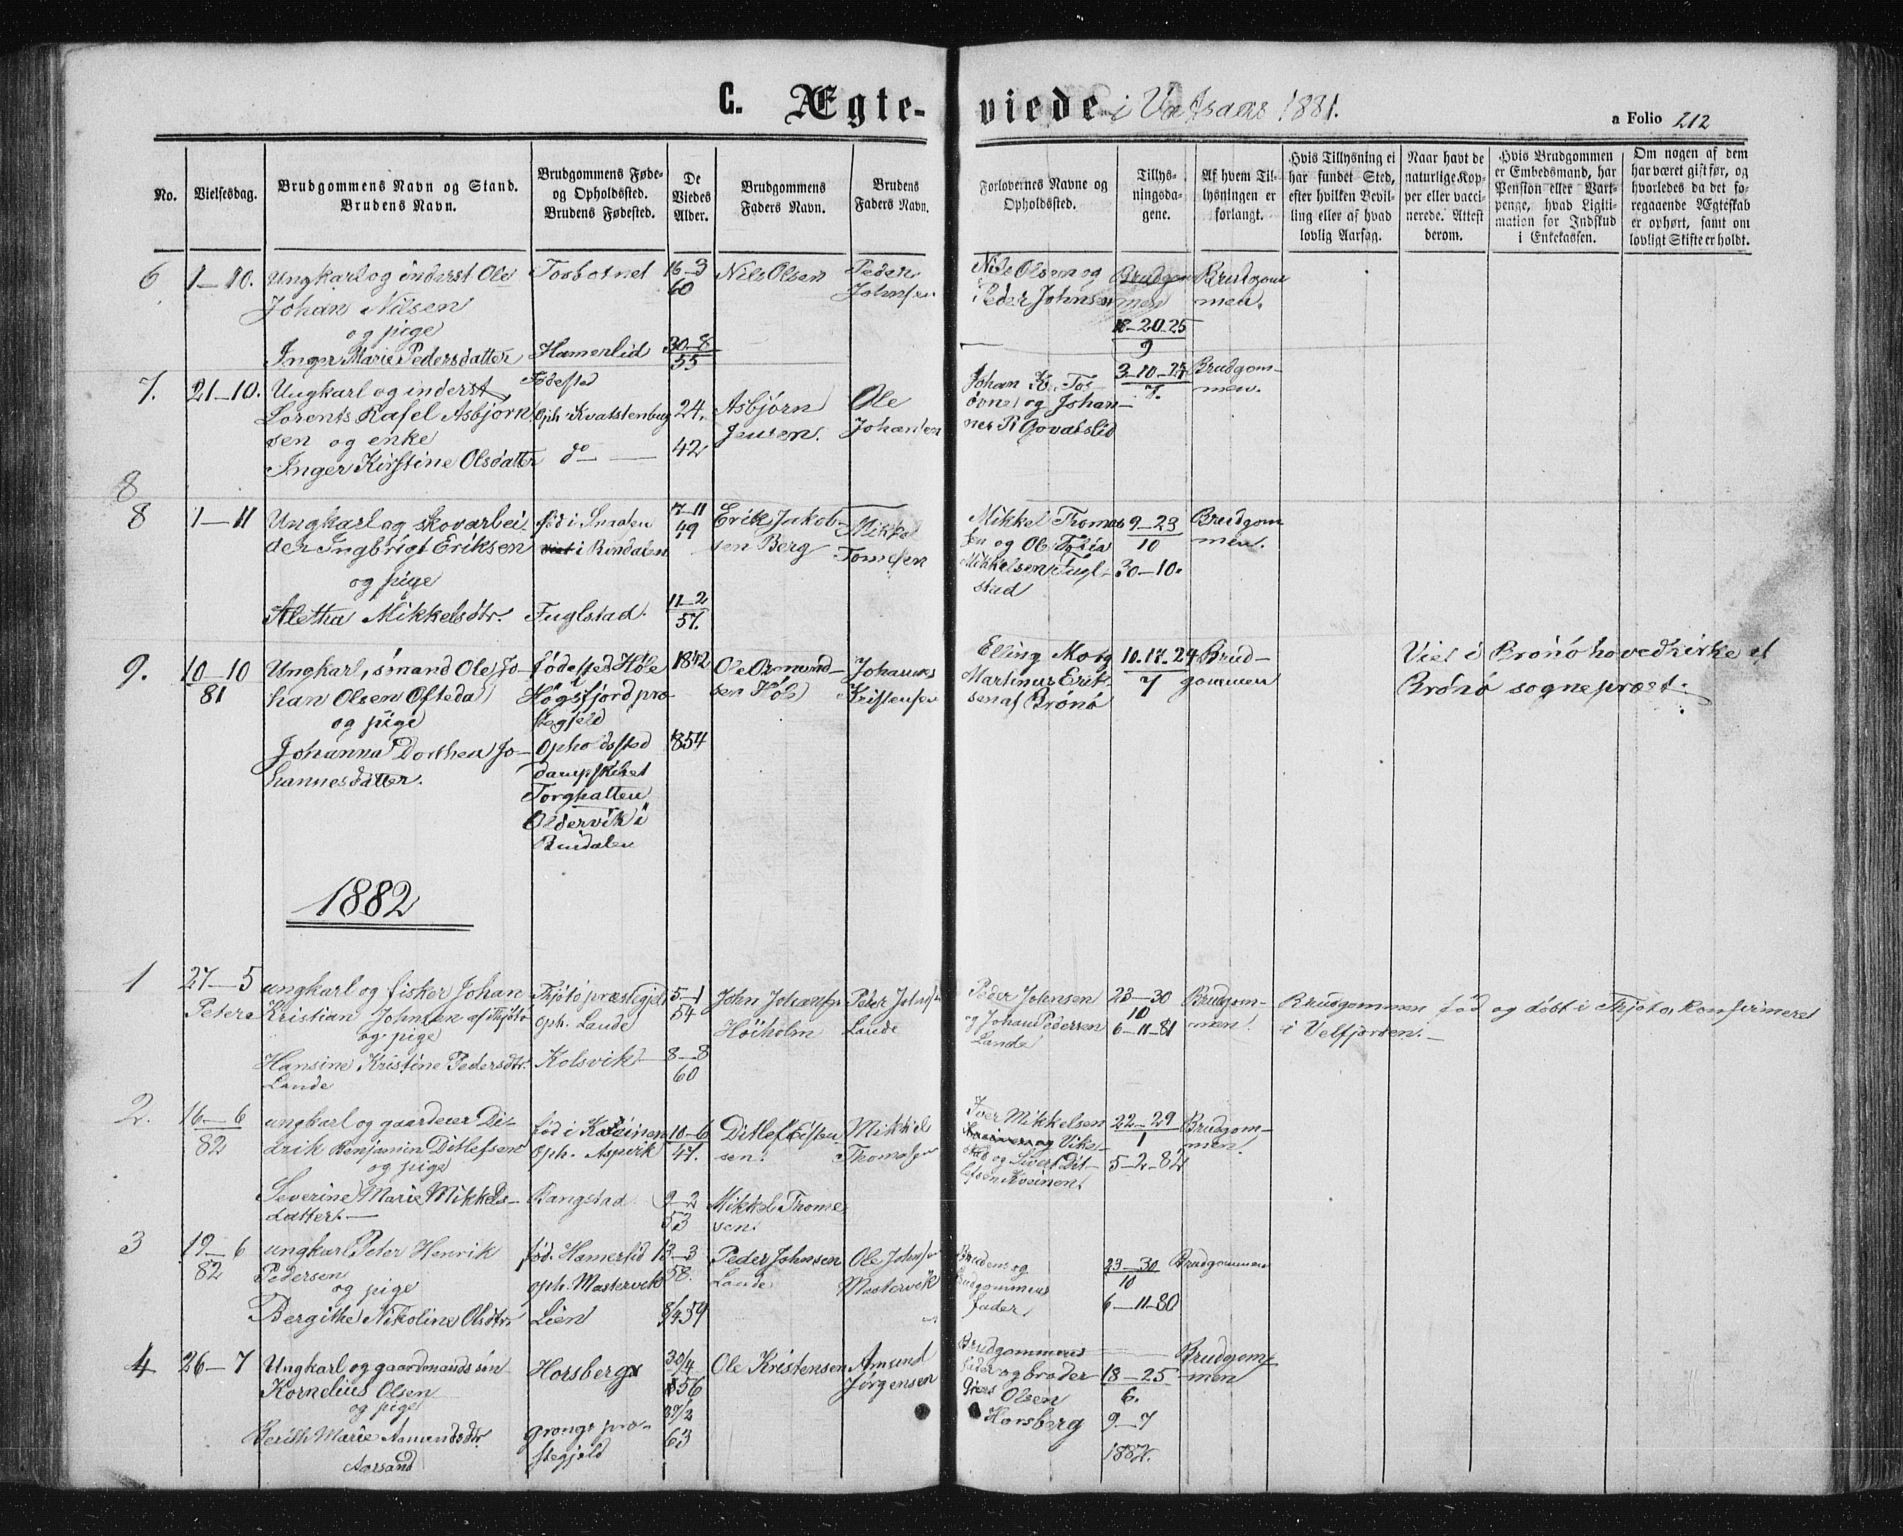 C. Ægte-viede i Vatsaas 1881.
a Folio 212
No.
Vielsesdag.
Brudgommens Navn og Stand.
Brudens Navn.
Brudgommens Føde-
og Opholdssted.
Brudens Fødested.
De
Viedes
Alder.
Brudgommens
Faders Navn.
Brudens
Faders Navn.
Forlovernes Navne og
Opholdssted.
Tillys-
ningsda-
gene.
Af hvem Til-
lysningen er
forlangt.
Hvis Tillysning ei
har fundet Sted,
efter hvilken Bevil-
ling eller af hvad
lovlig Aarsag.
Naar havt de
naturlige Kop-
per eller vacci-
nerede. Attest
derom.
Hvis Brudgommen
er Embedsmand, har
Pension eller Vart-
penge, hvad Ligiti-
mation for Indskud
i Enkekassen.
Om nogen af dem
har været gift før, og
hvorledes da det fo-
regaaende Ægteskab
er ophørt, samt om
lovligt Skifte er holdt.
6 1–10. Ungkarl og inderst Ole
Johan Nilsen
og pige
Inger Marie Pedersdatter
Torbotnet
Hamerlid
16–3
60
30–8
55
Nils Olsen
Peder
Johnsen
Nils Olsen og
Peder Johnsen
Brudgom
men
18–20–25
9
Brudgom
men.
7. 21–10. Ungkarl og inderst
Lorents Kasel Asbjørn
sen og enke
Inger Kirstine Olsdatter
Fødested
Oph. Kvatstenbug
do
24.
42
Asbjørn
Jensen.
Ole
Johansen
og Johan
3–10–24
7.
Brudgom-
men.
8
8 1–11 Ungkarl og skovarbei
der Ingbrigt Eriksen
og pige
Aletha Mikkelsdtr.
fød i
i Bindalen
Fuglstad.
7–11
49
11–2
57.
Erik Jakob-
sen Berg
Mikkel
Tomesen
Mikkel Thomas
sen og Ole Tobia
Mikkelsen Fugl-
stad
9–23
10
30–10.
Brudgom
men.
9. 10–10
81
Ungkarl, sømand Ole Jo-
han Olsen Oftedal
og pige
Johanna Dorthea Jo-
hannesdatter.
fødested Høle
i
Høgsfjord præ-
stegjeld
Opholdssted
dampskibet
Torghatten
Oldervik i
Bindalen
1842
1854
Ole Osmund-
sen Høle
Johannes
Kristensen
Elling Moe og
Martinus Erik-
sen af Brønø
10.17.24
7
Brud-
gommen
Viet i Brønø hovedkirke af
Brønø sogneprest.
1882
1 27–5
Peter
ungkarl og fisker Johan
Kristian Johnsen af Thjøtø
og pige
Hansine Kristine Pedersdtr.
Lande
Thjøtø præstegjeld
oph. Lande
Kolsvik
5–1
54
8–8
60
John Johansen
Høiholm
Peder Johnsen
Lande
Peder Johnsen
og Johan Pedersen
Lande
23–30
10
6–11–81
Brudgom-
men.
Brudgommen fød og døbt i Thjøtø, konfirmeret
i Velfjorden.
2. 16–6
82
ungkarl og gaardeier Di-
drik Benjamin Ditlefsen
og pige
Severine Marie Mikkels-
datter.
fød i Kveinen
oph. Aspvik
Bangstad
10–6
47.
9–2
53
Ditlef Eisten
sen.
Mikkel Thome
sen.
Mikkel
Thomasen
Iver Mikkelsen
og Sivert Dit-
lefsen Kveinen.
22–29
1
5–2–82
Brudgom-
men.
3 19–6
82
ungkarl Peter Henrik
Pedersen
og pige
Bergithe Nikoline Olsdtr.
fød. Hamerlid
oph. Mastervik
Lien
13–3
58.
8/4 59
Peder Johnsen
Lande
Ole Johnsen
Mastervik
Brudens og
Brudgommens
fader
23–30
10
6–11–80
Brudgommen
4 26–7 Ungkarl og gaardmands søn
Kornelius Olsen
og pige
Berith Marie Asmundsdtr.
Aarsand
Horsberg
grongs præ-
stegjeld
30/4
56
63
Ole Kristensen
Amund
Jørgensen
Brudgommens
fader og broder
Olsen
Horsberg
18–25
6.
9–7
1882.
Brudgom
men